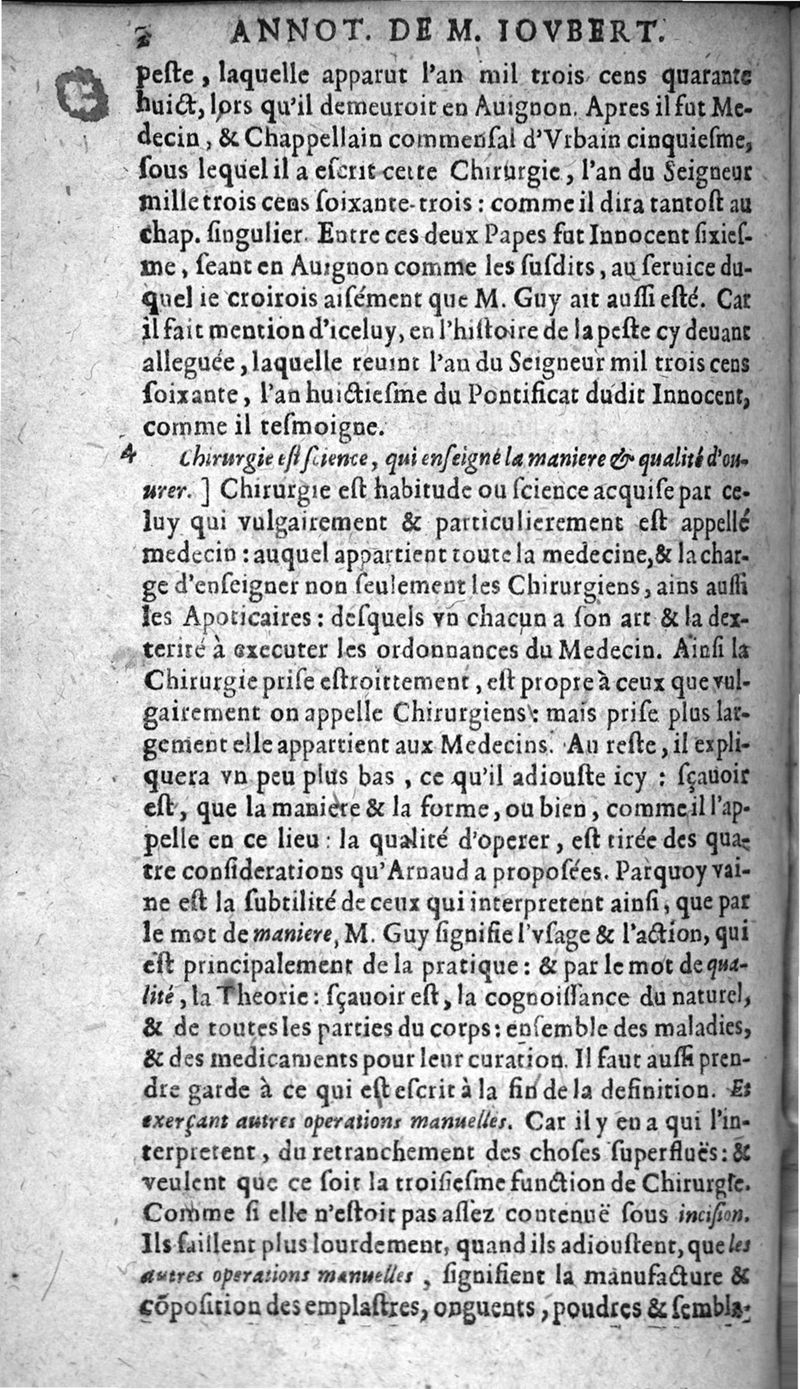 2 ANNOT. DE M. IOVBERT.
peſte, laquelle apparut l'an mil trois cens quarante
huict, lors qu'il demeuroit en Auignon. Apres il fut Me-
decin, & Chappellain commenſal d'Vrbain cinquieſme,
ſous lequel il a eſcrit cette Chirurgie, l'an du Seigneur
mille trois cens ſoixante-trois : comme il dira tantoſt au
chap. ſingulier. Entre ces deux Papes fut Innocent ſixieſ-
me, ſeant en Auignon comme les ſuſdits, au ſeruice du-
quel ie croirois aiſément que M. Guy ait auſſi eſté. Car
il fait mention d'iceluy, en l'hiſtoire de la peſte cy deuant
alleguée, laquelle reuint l'an du Seigneur mil trois cens
ſoixante, l'an huictieſme du Pontificat dudit Innocent,
comme il teſmoigne.
4 Chirurgie eſt ſcience, qui enſeigne la maniere & qualité d'ou-
urer. ] Chirurgie eſt habitude ou ſcience acquiſe par ce-
luy qui vulgairement & particulierement eſt appellé
medecin : auquel appartient toute la medecine, & la char-
ge d'enſeigner non ſeulement les Chirurgiens, ains auſſi
les Apoticaires : deſquels vn chacun a ſon art & la dex-
terité à executer les ordonnances du Medecin. Ainſi la
Chirurgie priſe eſtroittement, eſt propre à ceux que vul-
gairement on appelle Chirurgiens : mais priſe plus lar-
gement elle appartient aux Medecins. Au reſte, il expli-
quera vn peu plus bas, ce qu'il adiouſte icy : ſçauoir
eſt, que la maniere & la forme, ou bien, comme il l'ap-
pelle en ce lieu : la qualité d'operer, eſt tirée des qua-
tre conſiderations qu'Arnaud a propoſées. Parquoy vai-
ne eſt la ſubtilité de ceux qui interpretent ainſi, que par
le mot de maniere, M. Guy ſignifie l'vſage & l'action, qui
eſt principalement de la pratique : & par le mot de qua-
lité, la Theorie : ſçauoir eſt, la cognoiſſance du naturel,
& de toutes les parties du corps : enſemble des maladies,
& des medicaments pour leur curation. Il faut auſſi pren-
dre garde à ce qui eſt eſcrit à la fin de la definition. Et
exerçant autres operations manuelles. Car il y en a qui l'in-
terpretent, du retranchement des choſes ſuperfluës : &
veulent que ce ſoit la troiſieſme function de Chirurgie.
Comme ſi elle n'eſtoit pas aſſez contenuë ſous inciſion.
Ils faillent plus lourdement, quand ils adiouſtent, que les
autres operations manuelles, ſignifient la manufacture &
cõpoſition des emplaſtres, onguents, poudres & ſembla-